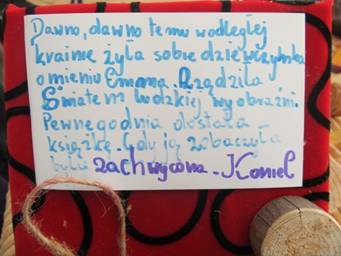 Dawno, dawno temu w odległej
krainie żyła sobie dziewczynka
o mieniu Emama. Rządziła
Światem ludzkiej wyobraźni.
Pewnego dnia dostała
książkę. Gdy ją zobaczyła
była zachwycona. Koniec